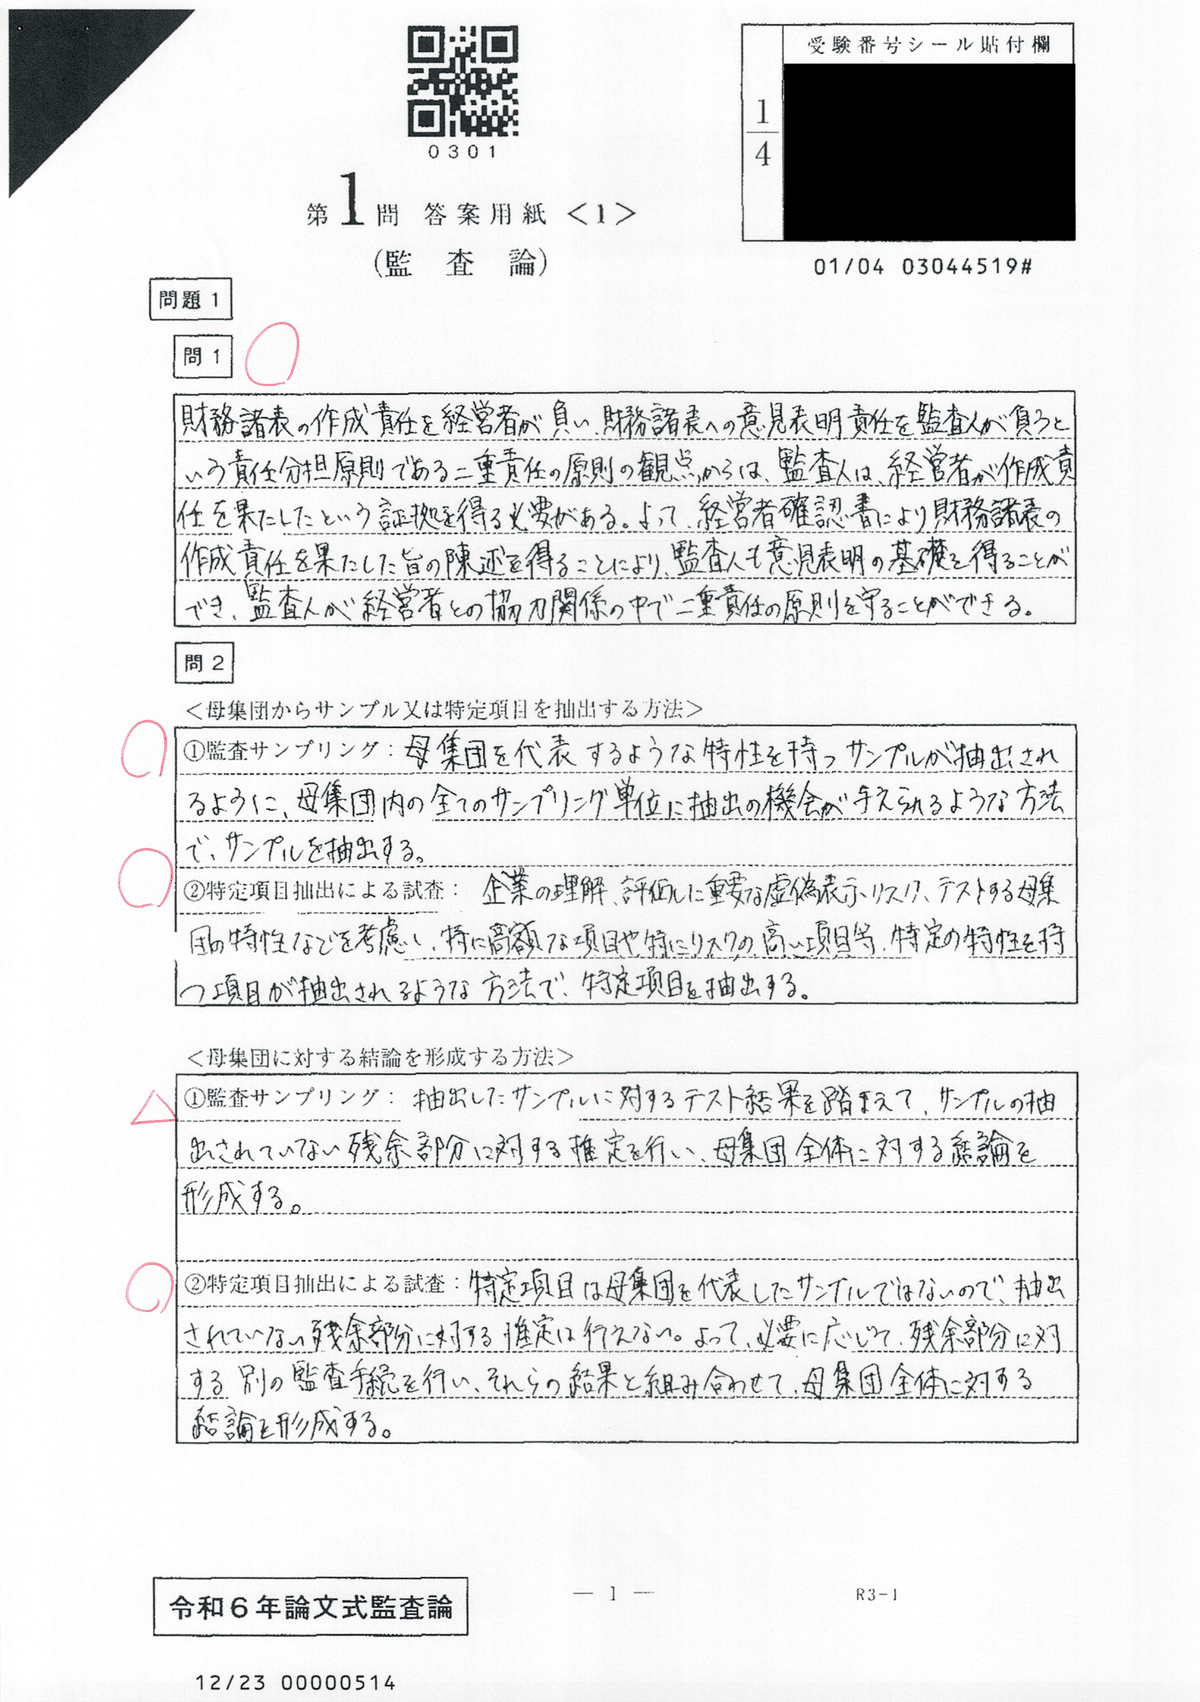 0301
受験番号シール貼付欄
1
4
第1問 答案用紙<1>
(監 査 論)
01/04 03044519#
問題1
問1
財務諸表の作成責任を経営者が負い、財務諸表への意見表明責任を監査人が負うと
いう責任分担原則である二重責任の原則の観点からは、監査人は、経営者が作成責
任を果たしたという証拠を得る必要がある。よって、経営者確認書により財務諸表の
作成責任を果たした旨の陳述を得ることにより、監査人も意見表明の基礎を得ることが
でき、監査人が経営者との協力関係の中で二重責任の原則を守ることができる。
問2
<母集団からサンプル又は特定項目を抽出する方法>
①監査サンプリング:母集団を代表するような特性を持つサンプルが抽出され
るように、母集団内の全てのサンプリング単位に抽出の機会が与えられるような方法
で、サンプルを抽出する。
②特定項目抽出による試査: 企業の理解、評価した重要な虚偽表示リスク、テストする母集
団の特性などを考慮し、特に高額な項目や特にリスクの高い項目等、特定の特性を持
つ項目が抽出されるような方法で、特定項目を抽出する。
<母集団に対する結論を形成する方法>
①監査サンプリング: 抽出したサンプルに対するテスト結果を踏まえて、サンプルの抽
出されていない残余部分に対する推定を行い、母集団全体に対する結論を
形成する。
②特定項目抽出による試査:特定項目は母集団を代表したサンプルではないので、抽出
されていない残余部分に対する推定は行えない。よって、必要に応じて、残余部分に対
する別の監査手続を行い、それらの結果と組み合わせて、母集団全体に対する
結論を形成する。
— 1 —
R3-1
令和6年論文式監査論
12/23 00000514